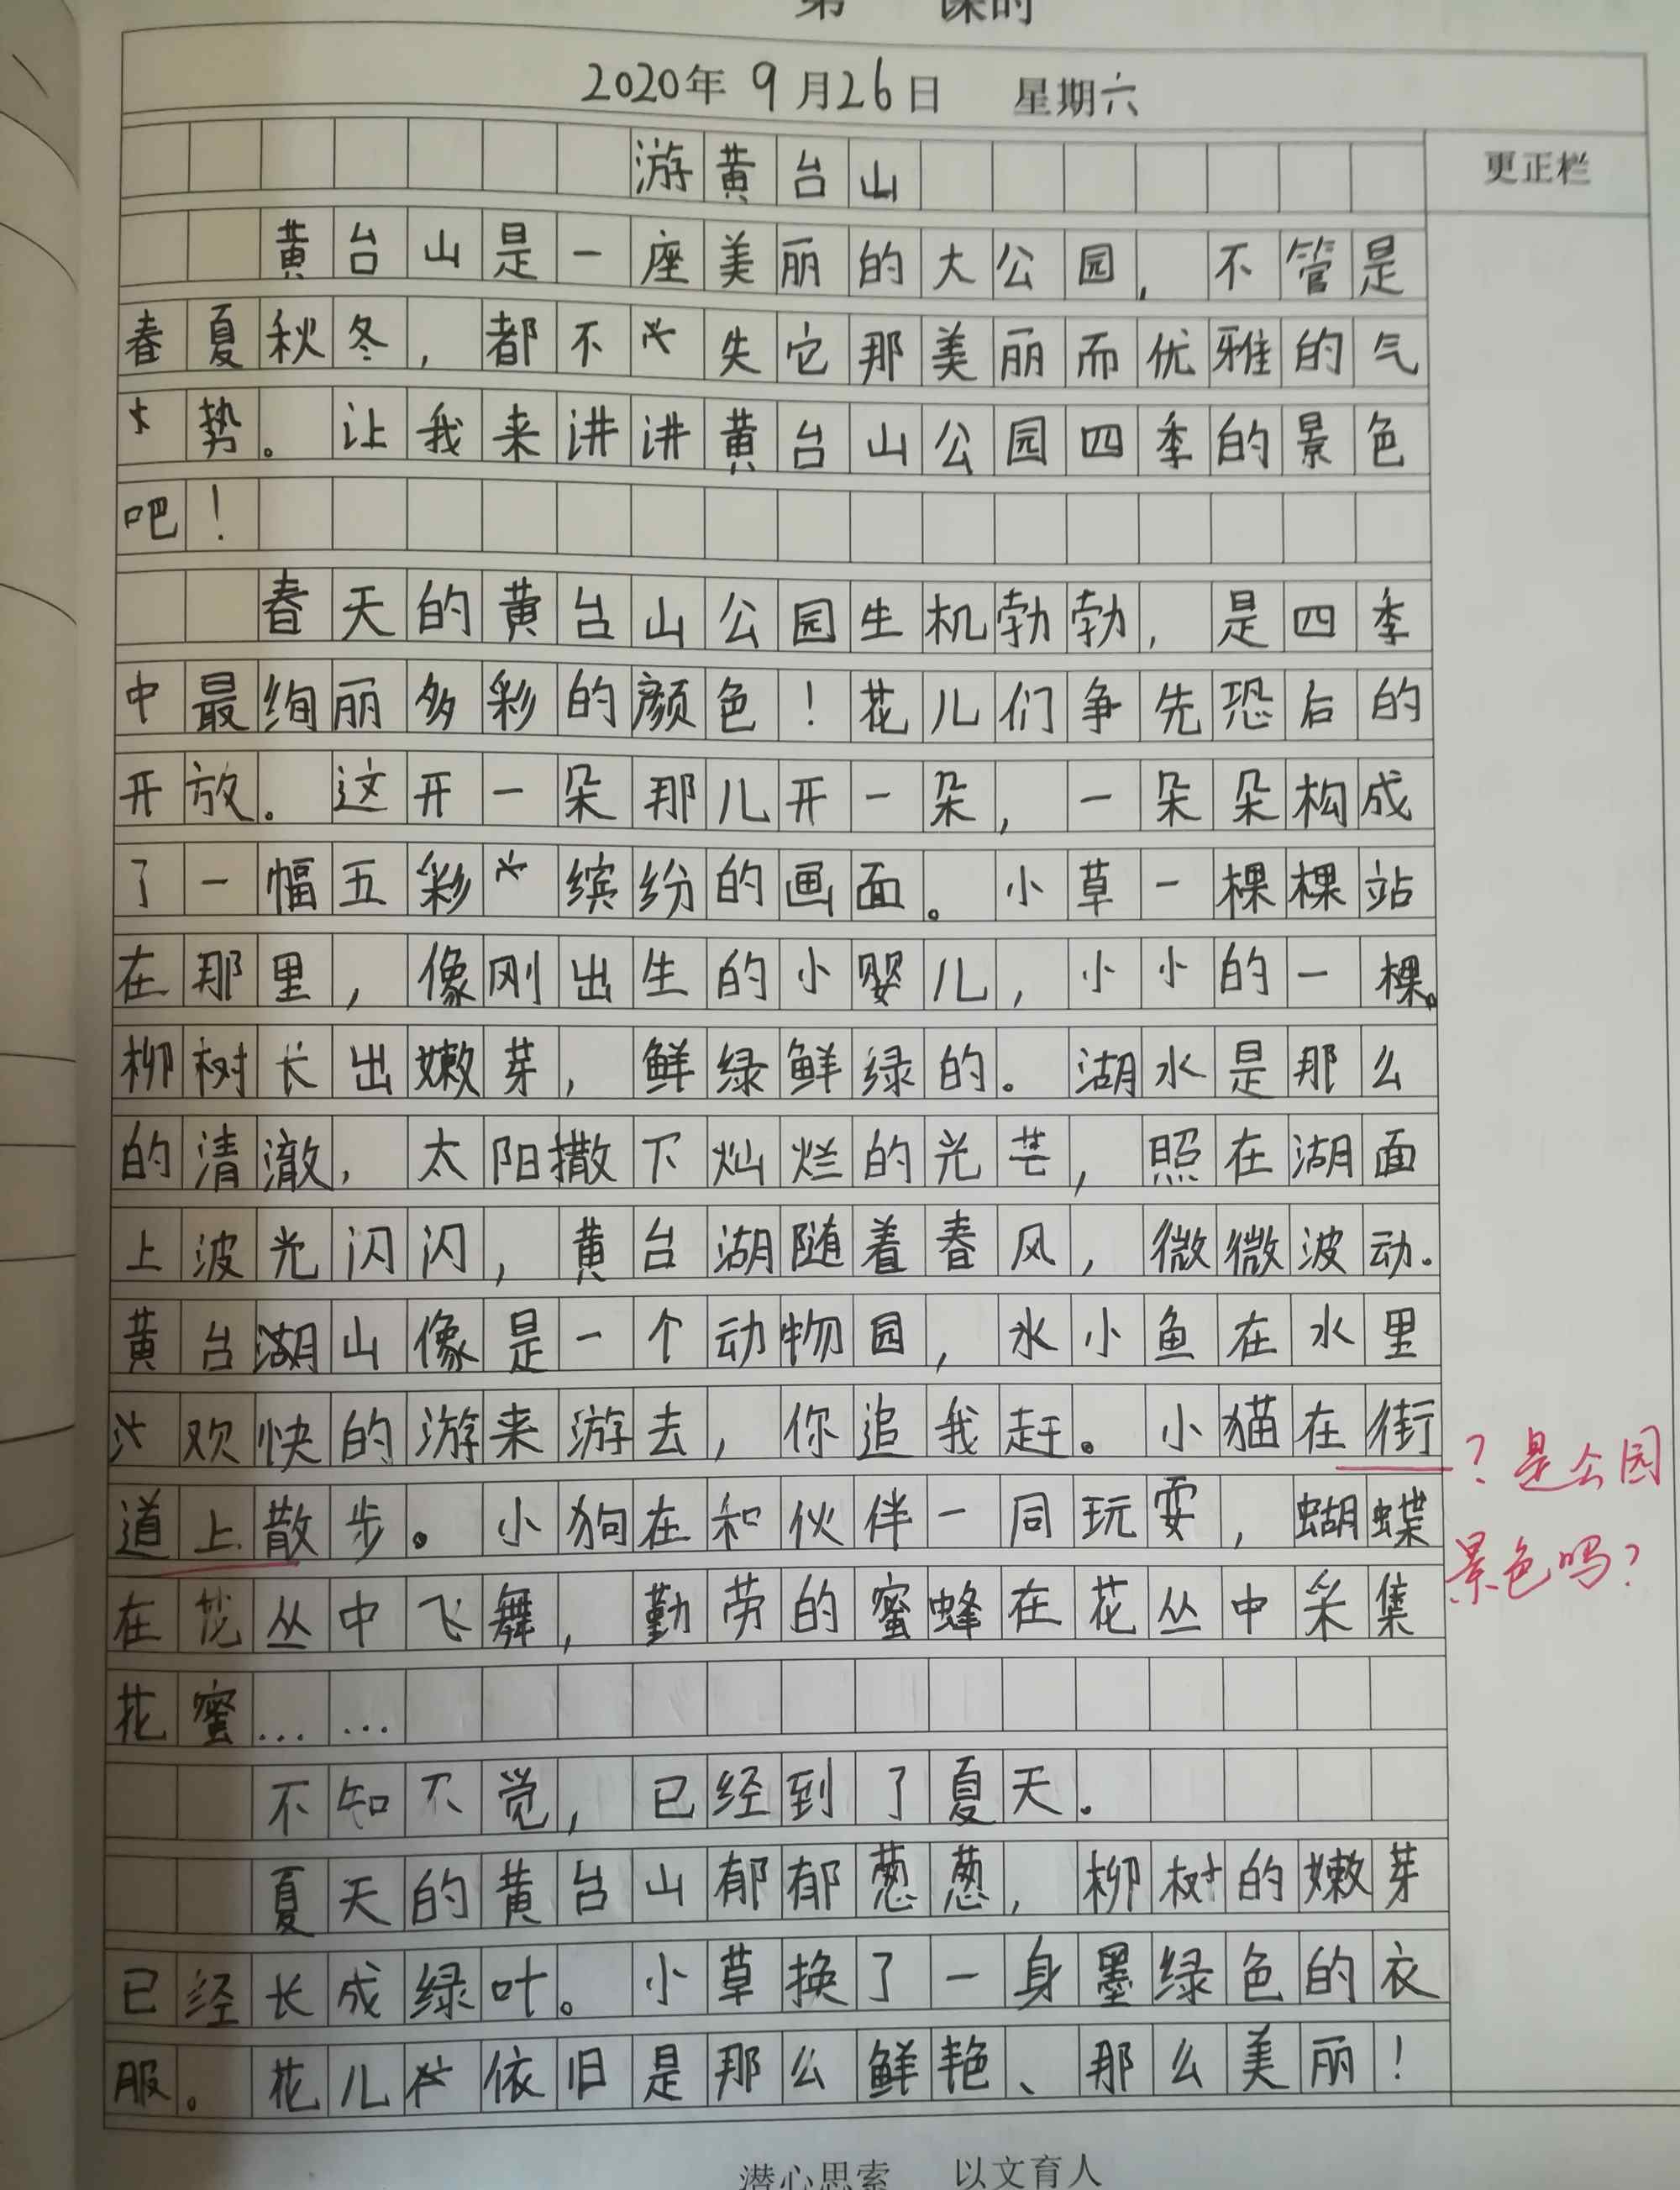 第 课时
2020年 9月26日 星期六
游黄台山
更正栏
黄台山是一座美丽的大公园，不管是
春夏秋冬，都不失它那美丽而优雅的气
势。让我来讲讲黄台山公园四季的景色
吧！
春天的黄台山公园生机勃勃，是四季
中最绚丽多彩的颜色！花儿们争先恐后的
开放。这开一朵那儿开一朵，一朵朵构成
了一幅五彩缤纷的画面。小草一棵棵站
在那里，像刚出生的小婴儿，小小的一棵。
柳树长出嫩芽，鲜绿鲜绿的。湖水是那么
的清澈，太阳撒下灿烂的光芒，照在湖面
上波光闪闪，黄台湖随着春风，微微波动.
黄台湖山像是一个动物园，水小鱼在水里
欢快的游来游去，你追我赶。小猫在街
道上散步。小狗在和伙伴一同玩耍，蝴蝶
？是公园
景色吗？
在花丛中飞舞，勤劳的蜜蜂在花丛中采集
花蜜……
不知不觉，已经到了夏天.
夏天的黄台山郁郁葱葱，柳树的嫩芽
已经长成绿叶。小草换了一身墨绿色的衣
服。花儿依旧是那么鲜艳、那么美丽！
潜心思索 以文育人